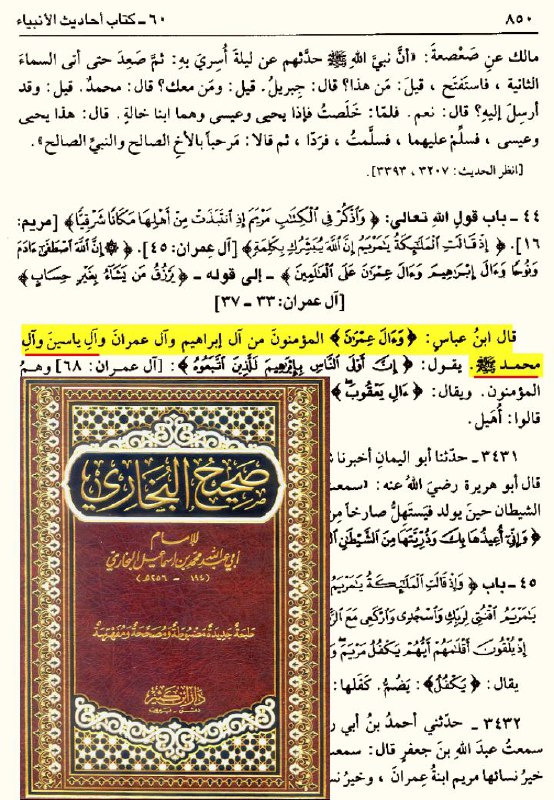 ٨٥٠ ٦٠ ـ كتاب أحاديث الأنبياء
مالك عنِ صَعْصعةَ: «أنَّ نبيَّ اللهِ ﷺ حدَّثهم عن ليلةَ أُسرِيَ بهِ: ثمَّ صَعِدَ حتى أتى السماءَ
الثانية ، فاستَفتَح ، قيلَ: مَن هذا؟ قال: جِبريلُ. قيل: ومَن معك؟ قال: محمدٌ. قيل: وقد
أرسِلَ إليهِ؟ قال: نعم. فلمّا: خَلَصتُ فإذا يحيى وعيسى وهما ابنا خالةٍ. قال: هذا يحيى
وعيسى ، فسلِّمْ عليهما ، فسلَّمتُ ، فرَدّا ، ثم قالا: مَرحباً بالأخِ الصالح والنبيِّ الصالح».
[انظر الحديث: ٣٢٠٧ ، ٣٣٩٣].
٤٤ ـ باب قولِ اللهِ تعالى: ﴿ وَٱذْكُرْ فِى ٱلْكِتَٰبِ مَرْيَمَ إِذِ ٱنتَبَذَتْ مِنْ أَهْلِهَا مَكَانًا شَرْقِيًّا﴾ [مريم:
١٦]. ﴿ إِذْ قَالَتِ ٱلْمَلَٰٓئِكَةُ يَٰمَرْيَمُ إِنَّ ٱللَّهَ يُبَشِّرُكِ بِكَلِمَةٍ﴾ [آل عمران: ٤٥]. ﴿ ۞ إِنَّ ٱللَّهَ ٱصْطَفَىٰٓ ءَادَمَ
وَنُوحًا وَءَالَ إِبْرَٰهِيمَ وَءَالَ عِمْرَٰنَ عَلَى ٱلْعَٰلَمِينَ ﴾ ـ إلى قوله ـ ﴿ يَرْزُقُ مَن يَشَآءُ بِغَيْرِ حِسَابٍ ﴾
[آل عمران: ٣٣ ـ ٣٧]
قال ابنُ عباسٍ: ﴿ وَءَالَ عِمْرَٰنَ ﴾ المؤمنونَ من آلِ إبراهيم وآل عمرانَ وآلِ ياسينَ وآلِ
محمد ﷺ. يقول: ﴿ إِنَّ أَوْلَى ٱلنَّاسِ بِإِبْرَٰهِيمَ لَلَّذِينَ ٱتَّبَعُوهُ ﴾: [آل عمران: ٦٨] وهمُ
المؤمنون. ويقال: ﴿ ءَالِ يَعْقُوبَ ﴾
قالوا: أُهَيل.
٣٤٣١ ـ حدّثنا أبو اليمانِ أخبرنا
قال أبو هريرة رضيَ اللهُ عنه: «سمعتُ
الشيطان حينَ يولد فيَستَهلُّ صارخاً مِن
﴿ وَإِنِّىٓ أُعِيذُهَا بِكَ وَذُرِّيَّتَهَا مِنَ ٱلشَّيْطَٰنِ
٤٥ ـ باب ﴿ وَإِذْ قَالَتِ ٱلْمَلَٰٓئِكَةُ يَٰمَرْيَمُ
يَٰمَرْيَمُ ٱقْنُتِى لِرَبِّكِ وَٱسْجُدِى وَٱرْكَعِى مَعَ
إِذْ يُلْقُونَ أَقْلَٰمَهُمْ أَيُّهُمْ يَكْفُلُ مَرْيَمَ
يقال: ﴿ يَكْفُلُ﴾: يَضُمُّ. كَفَلها:
٣٤٣٢ ـ حدّثني أحمدُ بنُ أبي
سمعتُ عبدَ اللهِ بنَ جعفرٍ قال: سمعتُ
خيرُ نسائها مريم ابنةُ عِمرانَ ، وخيرُ
صحيح البخاري
للإمام
أبي عبد الله محمد بن إسماعيل البخاري
(١٩٤ - ٢٥٦هـ)
طبعة جديدة مضبوطة ومصححة ومفهرسة
دار ابن كثير
دمشق - بيروت